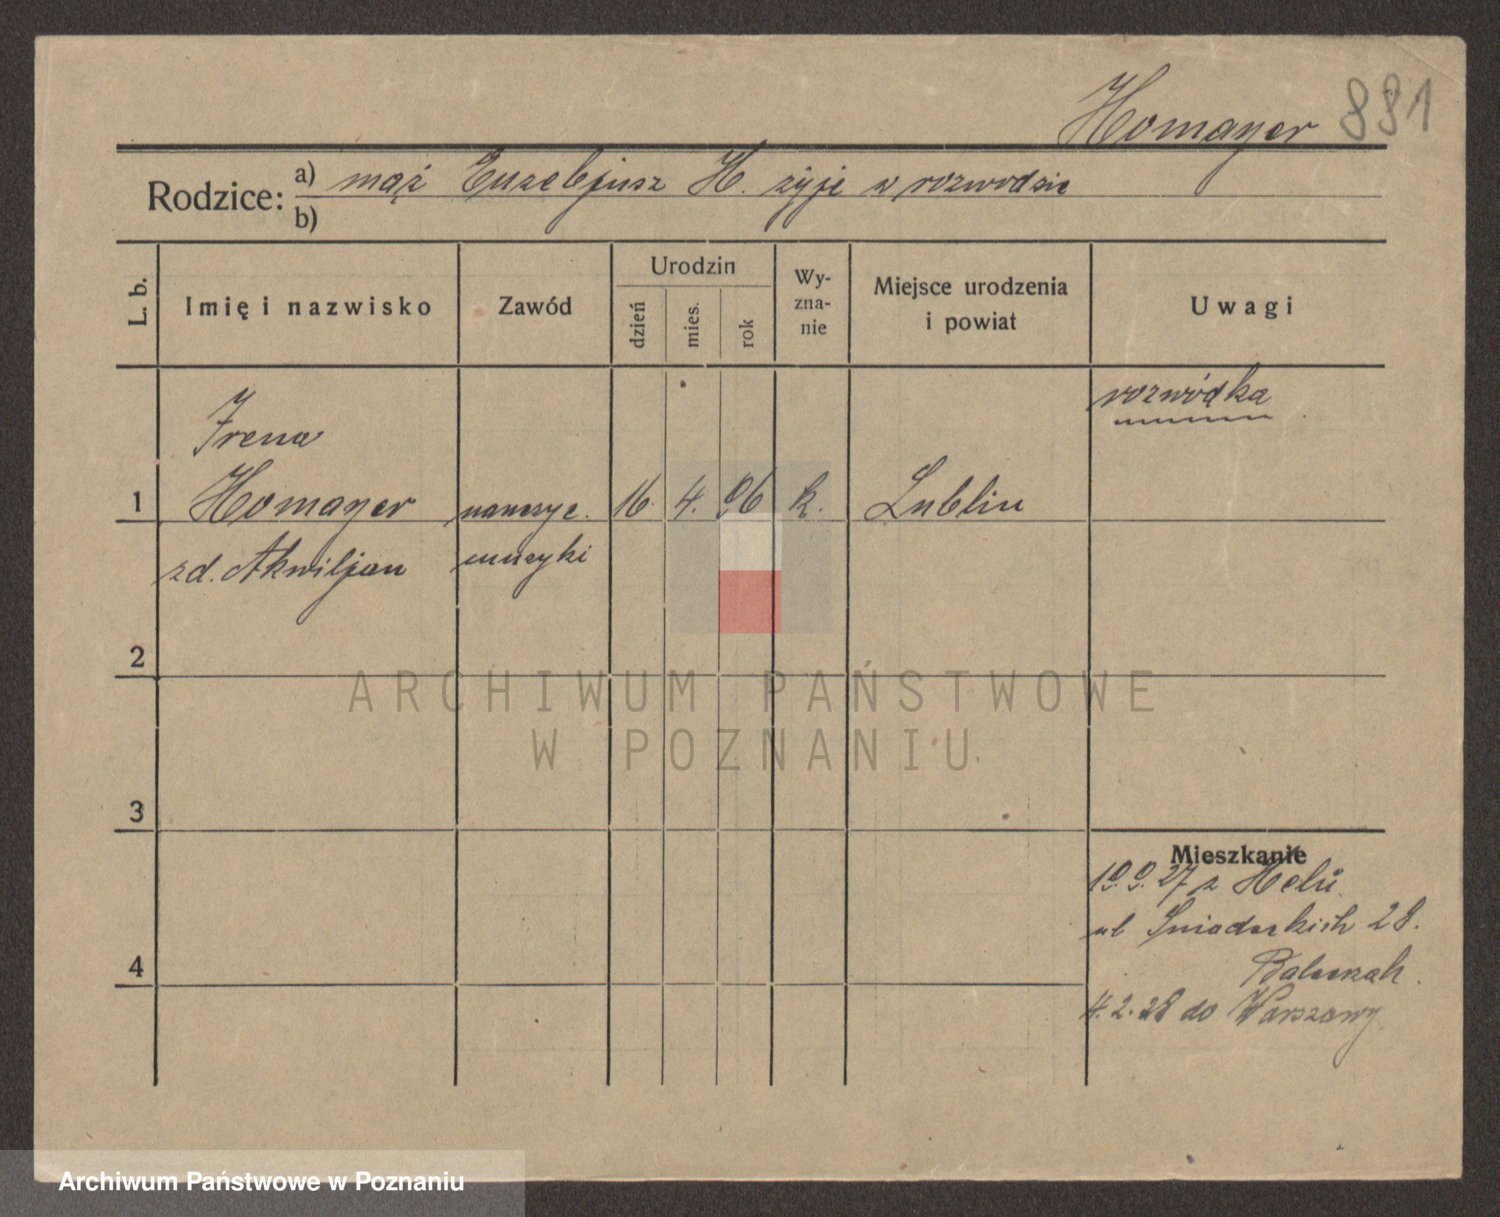 Homayer 881
Rodzice: a) mąż Euzebjusz H. żyje w rozwodzie
b)
L. b.
Imię i nazwisko
Zawód
Urodzin
dzień
mies.
rok
Wy-
zna-
nie
Miejsce urodzenia
i powiat
Uwagi
rozwódka
Irena
1 Homayer nauczyc. 16. 4. 96 k. Lublin
zd. Akwiljan muzyki
2
ARCHIWUM PAŃSTWOWE
W POZNANIU
3
Mieszkanie
19.9.27 z Helu
ul Śniadeckich 28.
4
4.2.28 do Warszawy
Archiwum Państwowe w Poznaniu